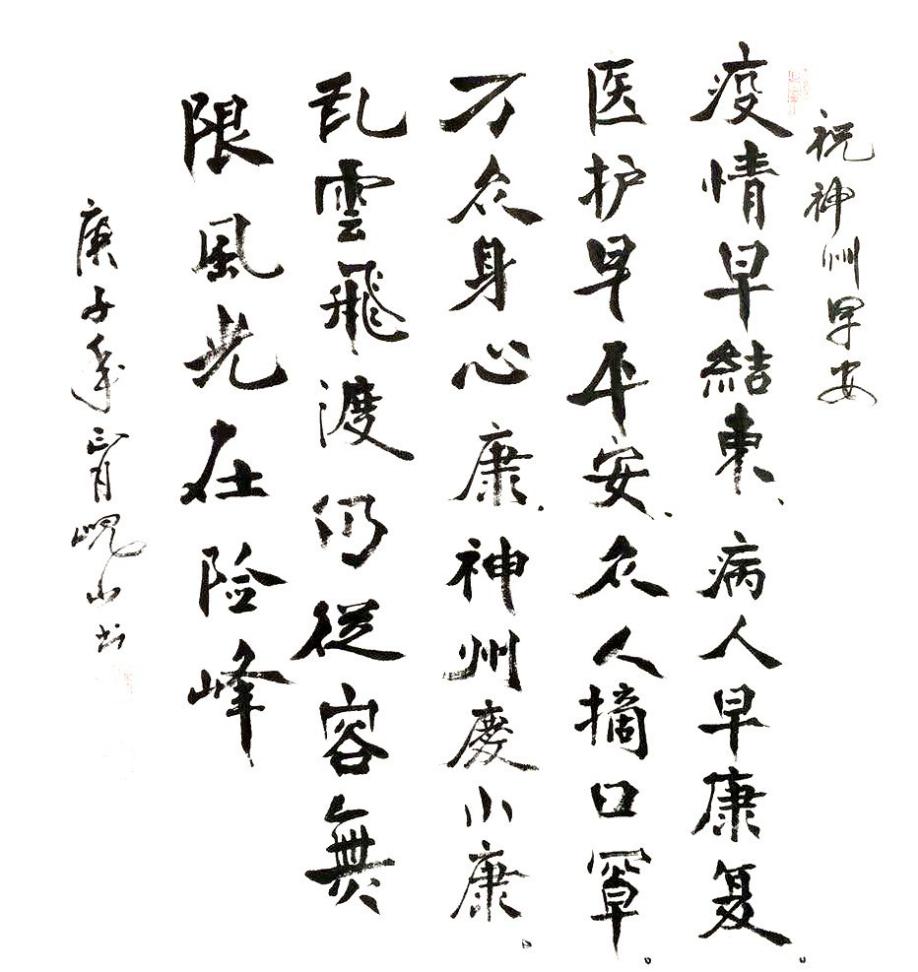 祝神州早安
疫情早結束、病人早康复。
医护早平安、众人摘口罩。
万众身心康、神州慶小康。
乱雲飛渡仍從容無
限風光在险峰
庚子年正月岘山书